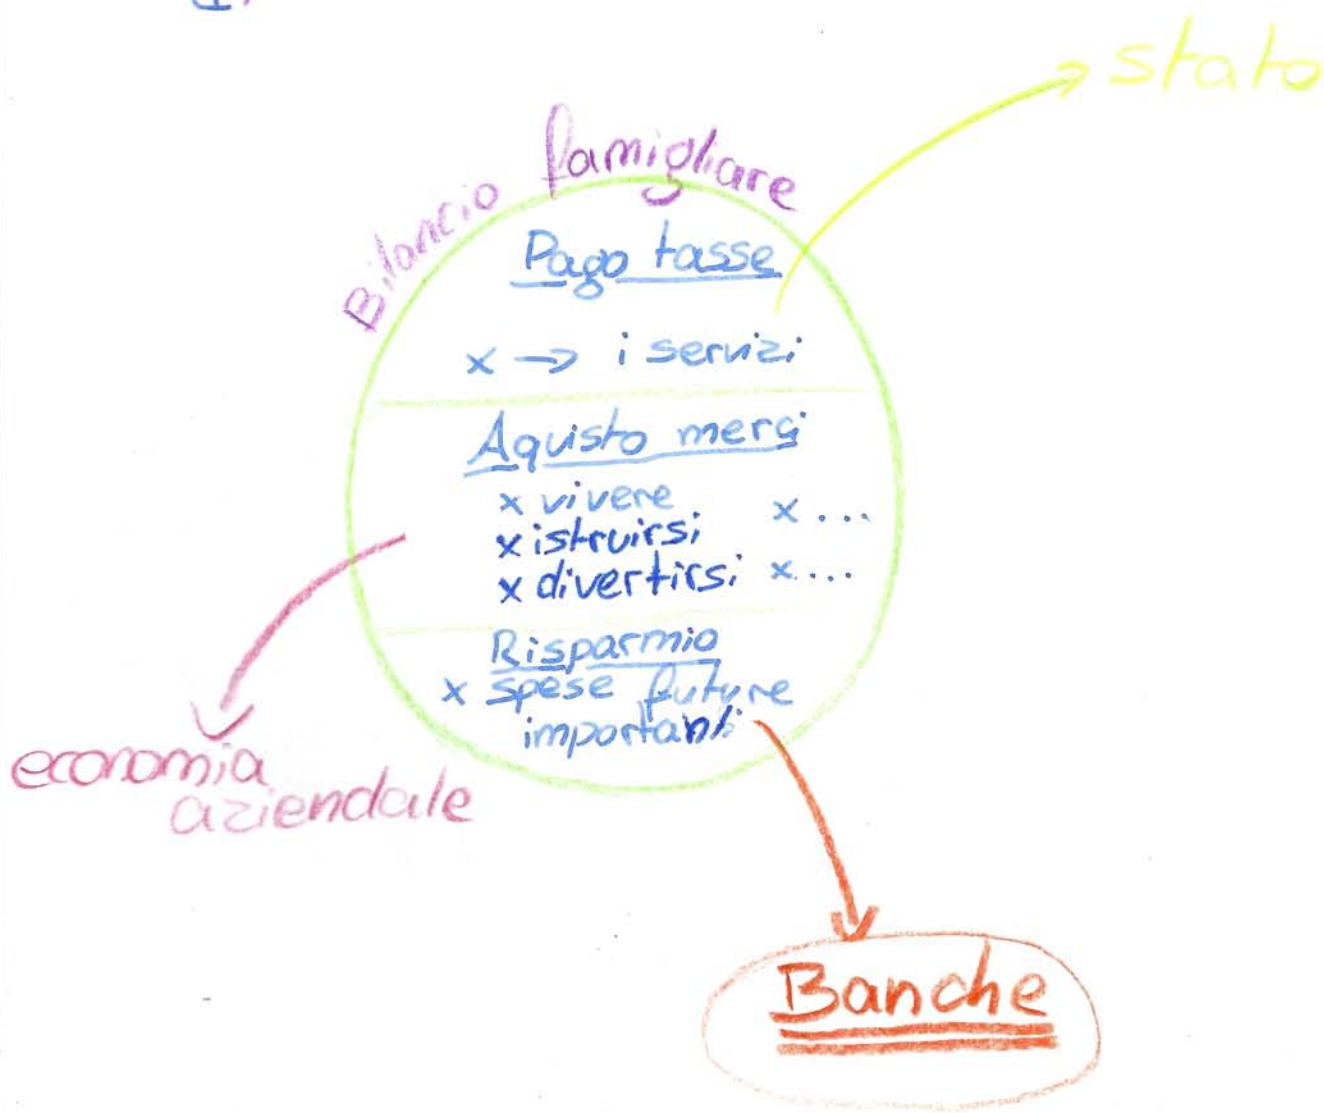 stato
Bilancio famigliare
Pago tasse
x → i servizi
Aquisto merci
x vivere x ...
x istruirsi
x divertirsi x....
Risparmio
x spese future
importanti
economia
aziendale
Banche